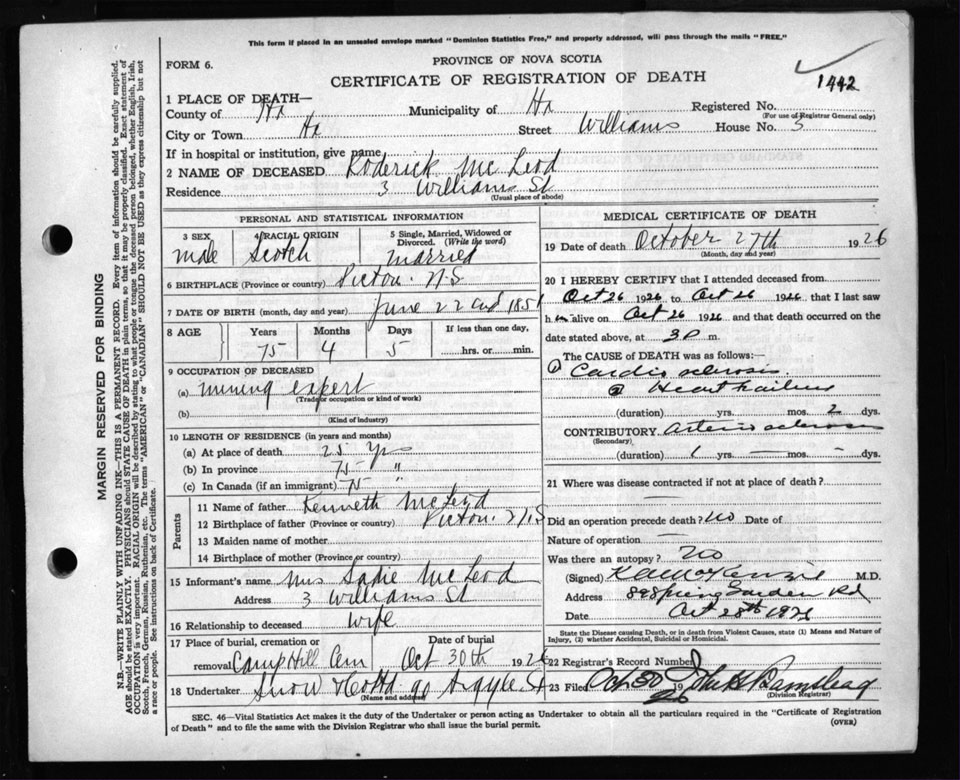 This form if placed in an unsealed envelope marked "Dominion Statistics Free," and properly addressed, will pass through the mails "FREE."
FORM 6.
PROVINCE OF NOVA SCOTIA
CERTIFICATE OF REGISTRATION OF DEATH
1442
1 PLACE OF DEATH—
County of Hx Municipality of Hx Registered No.
(For use of Registrar General only)
City or Town Hx Street Williams House No. 3
If in hospital or institution, give name
2 NAME OF DECEASED Roderick McLeod
Residence 3 Williams St
(Usual place of abode)
PERSONAL AND STATISTICAL INFORMATION
3 SEX 4 RACIAL ORIGIN 5 Single, Married, Widowed or Divorced. (Write the word)
male Scotch married
6 BIRTHPLACE (Province or country) Pictou. N.S
7 DATE OF BIRTH (month, day and year) June 22nd 1851
8 AGE Years Months Days If less than one day,
75 4 5 hrs. or min.
9 OCCUPATION OF DECEASED
(a) mining expert
(Trade or occupation or kind of work)
(b)
(Kind of industry)
10 LENGTH OF RESIDENCE (in years and months)
(a) At place of death 25 yrs
(b) In province 75 "
(c) In Canada (if an immigrant) 75 "
Parents
11 Name of father Kenneth McLeod
12 Birthplace of father (Province or country) Pictou. N.S
13 Maiden name of mother
14 Birthplace of mother (Province or country)
15 Informant's name Mrs Sadie McLeod
Address 3 Williams St
16 Relationship to deceased wife
17 Place of burial, cremation or removal Camp Hill Cem Date of burial Oct 30th 1926
18 Undertaker Snow 90 Argyle St
(Name and address)
MEDICAL CERTIFICATE OF DEATH
19 Date of death October 27th 1926
(Month, day and year)
20 I HEREBY CERTIFY that I attended deceased from
Oct 26 1926 to Oct 26 1926 that I last saw
him alive on Oct 26 1926 and that death occurred on the
date stated above, at 3 P m.
The CAUSE OF DEATH was as follows:—
① Cardio sclerosis
② Heart failure
(duration) yrs. mos. 2 dys.
CONTRIBUTORY Arterio sclerosis
(Secondary)
(duration) 1 yrs. — mos. — dys.
21 Where was disease contracted if not at place of death?
—
Did an operation precede death? no Date of
Nature of operation —
Was there an autopsy? No
(Signed) MacKenzie M.D.
Address Spring Garden Rd
Date Oct 28th 1926
State the Disease causing Death, or in death from Violent Causes, state (1) Means and Nature of Injury, (2) whether Accidental, Suicidal or Homicidal.
22 Registrar's Record Number
23 Filed Oct 30 19
(Division Registrar)
SEC. 46—Vital Statistics Act makes it the duty of the Undertaker or person acting as Undertaker to obtain all the particulars required in the "Certificate of Registration
of Death" and to file the same with the Division Registrar who shall issue the burial permit. (OVER)
MARGIN RESERVED FOR BINDING
N.B.—WRITE PLAINLY WITH UNFADING INK—THIS IS A PERMANENT RECORD. Every item of information should be carefully supplied.
AGE should be stated EXACTLY. PHYSICIANS should STATE CAUSE OF DEATH in plain terms, so that it may be properly classified. Exact statement of
OCCUPATION is very important. RACIAL ORIGIN will be described by stating to what people or tongue the deceased person belonged, whether English, Irish,
Scotch, French, German, Russian, Ruthenian, etc. The terms "AMERICAN" or "CANADIAN" SHOULD NOT BE USED as they express citizenship but not
a race or people. See instructions on back of Certificate.